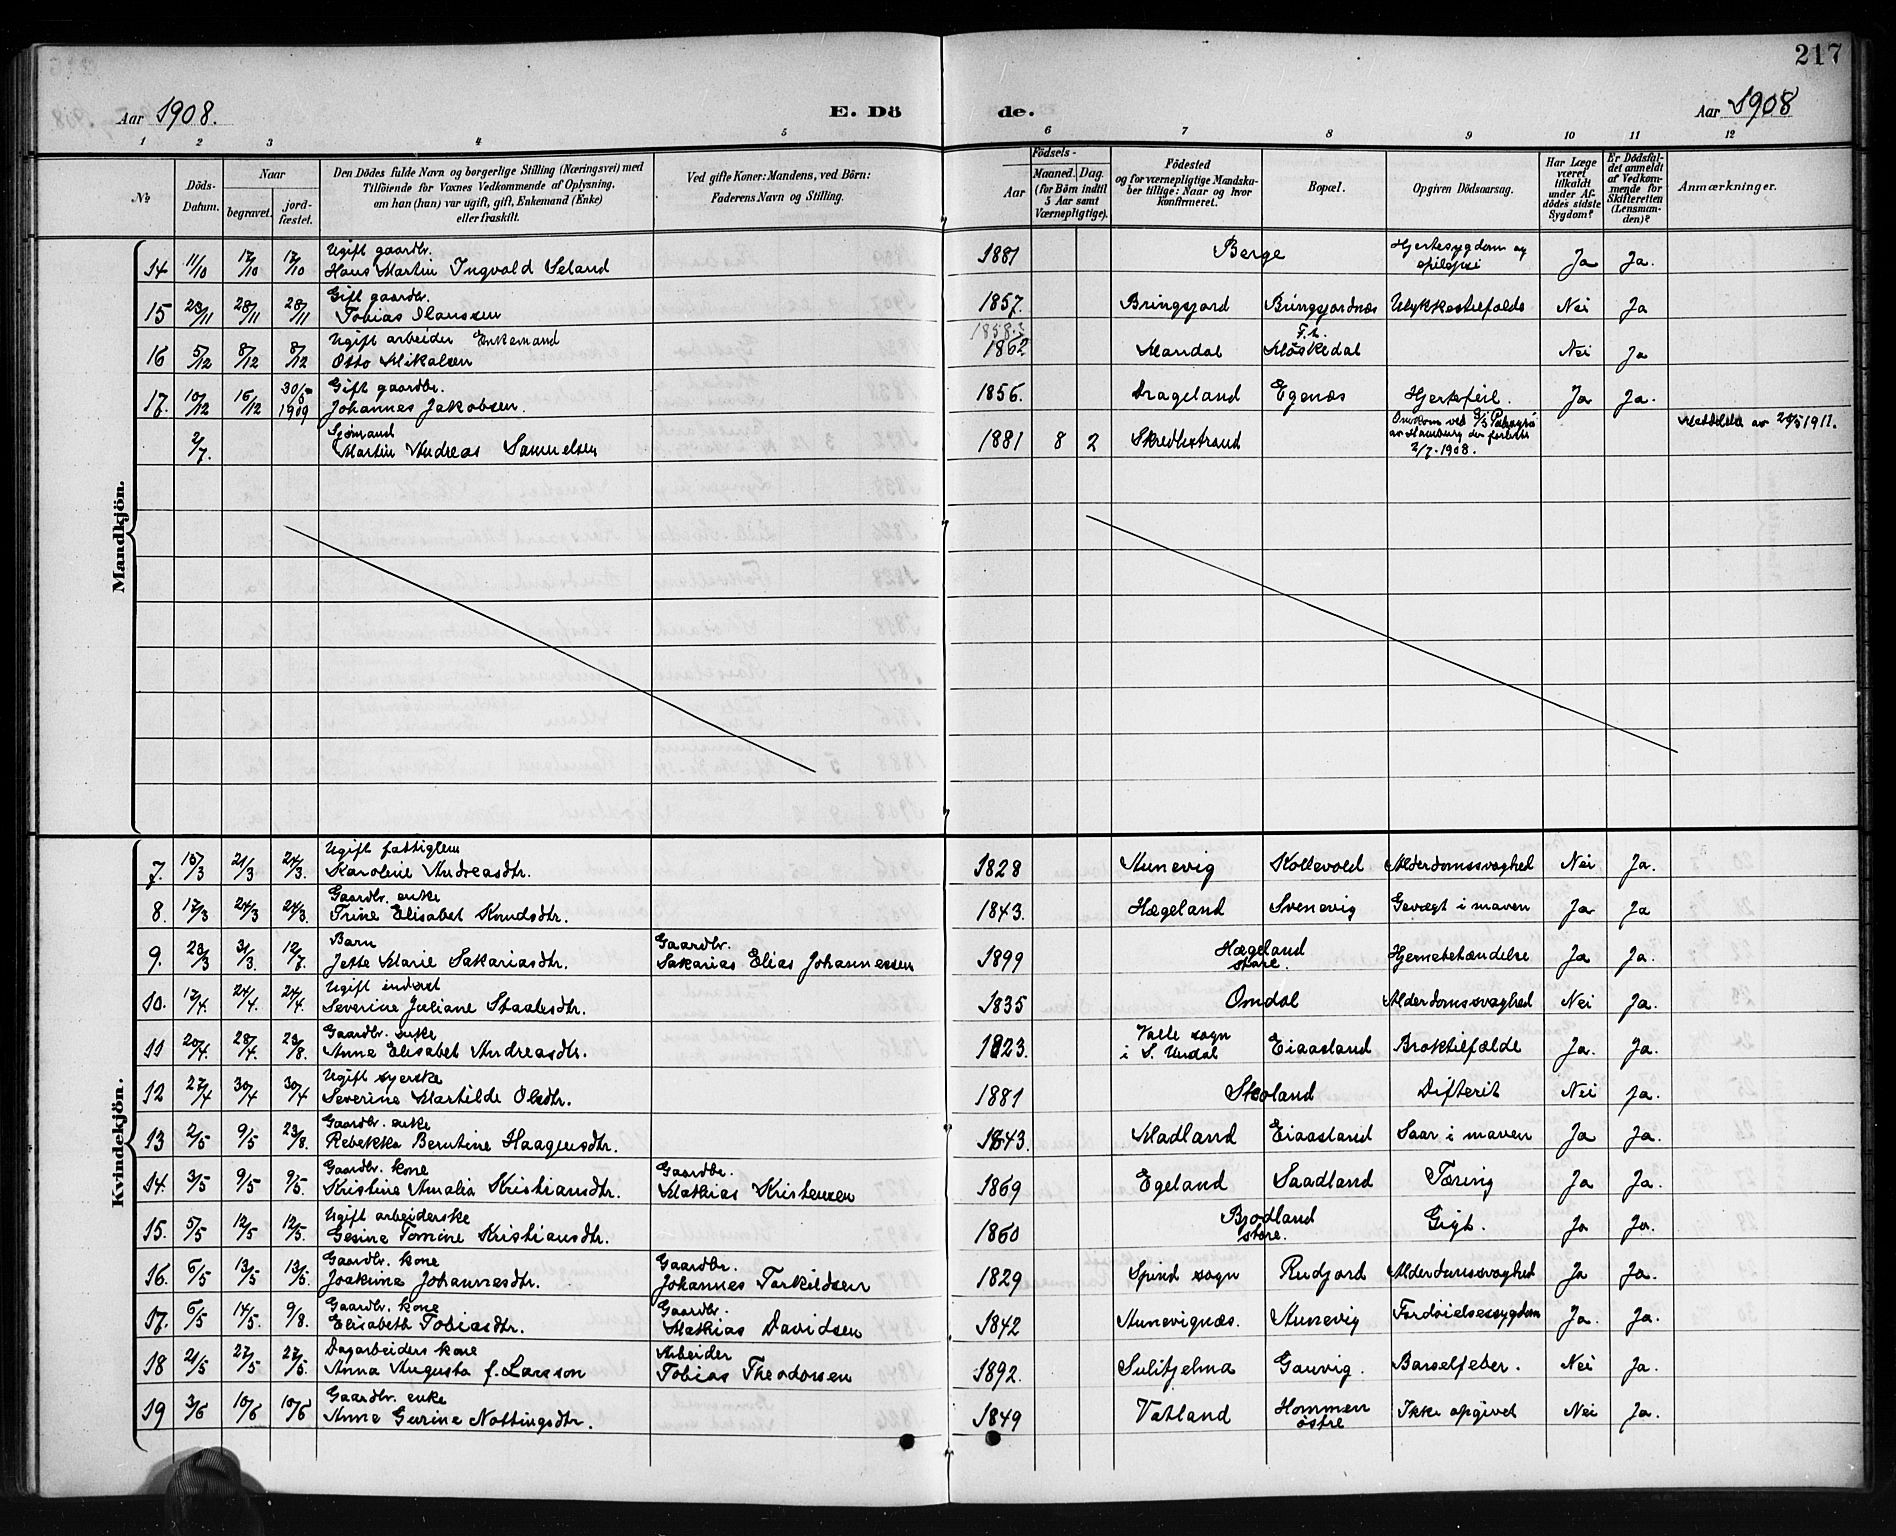 217
Aar 1908.
E. Dö de.
Aar 1908
1 2 3 4 5 6 7 8 9 10 11 12
№
Döds-Datum.
Naar
begravet.
jord-fæstet.
Den Dödes fulde Navn og borgerlige Stilling (Næringsvei) med
Tilföiende for Voxnes Vedkommende af Oplysning,
om han (hun) var ugift, gift, Enkemand (Enke)
eller fraskilt.
Ved gifte Koner: Mandens, ved Börn:
Faderens Navn og Stilling.
Födsels-
Aar
Maaned. Dag.
(for Börn indtil
5 Aar samt
Værnepligtige).
Födested
og for værnepligtige Mandska-
ber tillige: Naar og hvor
konfirmeret.
Bopæl.
Opgiven Dödsaarsag.
Har Læge
været
tilkaldt
under Af-
dödes sidste
Sygdom?
Er Dödsfal-
det anmeldt
af Vedkom-
mende for
Skifteretten
(Lensman-
den)?
Anmærkninger.
Mandkjön.
14 11/10 17/10 17/10 Ugift gaardbr. Hans Martin Ingvald Seland 1881 Berge Hjertesygdom og epilepsi Ja Ja.
15 23/11 28/11 28/11 Gift gaardbr. Tobias Hanssen 1857. Bringsjord Bringsjordnæs Ulykkestilfælde Nei Ja
16 5/12 8/12 8/12 Ugift arbeider Enkemand Otto Mikalsen 1858.3 1862 Mandal F.h. Möskedal Nei Ja
17. 10/12 16/12 30/5 1909 Gift gaardbr. Johannes Jakobsen. 1856. Drageland Egenæs Hjertefeil. Ja Ja.
2/7. Sjømand Martin Andreas Samuelsen 1881 8 2 Skredbstrand Omkom ved S/S av Hamburg den forliste 2/7-1908. Meddelelse av 24/5 1911.
Kvindekjön.
7. 15/3 21/3 24/3. Ugift fattiglem Karoline Andreasdtr. 1828 Aunevig Kollevold Alderdomssvaghed Nei Ja.
8. 17/3 24/3 24/3. Gaardbr. enke Trine Elisabet Knudsdtr. 1843. Hægeland Svenevig Gevægt i maven Ja Ja
9. 23/3 31/3. 12/7. Barn Jette Marie Sakariasdtr. Gaardbr. Sakarias Elias Johannessen 1899 Hægeland store. Hjernebetændelse Ja Ja
10. 17/4. 24/4. 24/4. Ugift inderst Severine Juliane Staalesdtr. 1835 Omdal Alderdomssvaghed Nei Ja.
11 20/4. 28/4. 23/8. Gaardbr. enke Anne Elisabet Andreasdtr. 1823. Valle sogn i S. Undal Eiaasland Broktilfælde Ja. Ja.
12 27/4 30/4 30/4 Ugift syerske Severine Martilde Olsdtr. 1881 Skoland Difterit Nei Ja.
13 2/5 9/5 23/8. Gaardbr. enke Rebekka Berntine Haagensdtr. 1843. Madland Eiaasland Saar i maven Ja Ja.
14. 3/5 9/5 9/5. Gaardbr. kone Kristine Amalia Kristiansdtr. Gaardbr. Mathias Kristensen 1869 Egeland Saadland Tæring Ja Ja.
15. 5/5 12/5 12/5. Ugift arbeiderske Gesine Tomine Kristiansdtr. 1860 Bjodland store. Gigt. Ja Ja.
16. 6/5 13/5 13/5. Gaardbr. kone Joakime Johannesdtr. Gaardbr. Johannes Torkildsen 1829 Spind sogn Rudjord Alderdomssvaghed Ja Ja.
17. 6/5 14/5. 9/8. Gaardbr. kone Elisabeth Tobiasdtr. Gaardbr. Mathias Davidsen 1842 Aunevignæs. Aunevig Fordöielsessygdom Ja. Ja.
18 21/5 27/5 27/5. Dagarbeiders kone Anna Augusta f. Larsson Arbeider Tobias Theodorsen 1892. Sulitjelma Gauvig. Barselfeber. Nei Ja.
19 3/6 10/6 10/6 Gaardbr. enke Anne Gurine Nottingsdtr. 1849 Vatland Hommen östre Ikke opgivet Nei Ja.